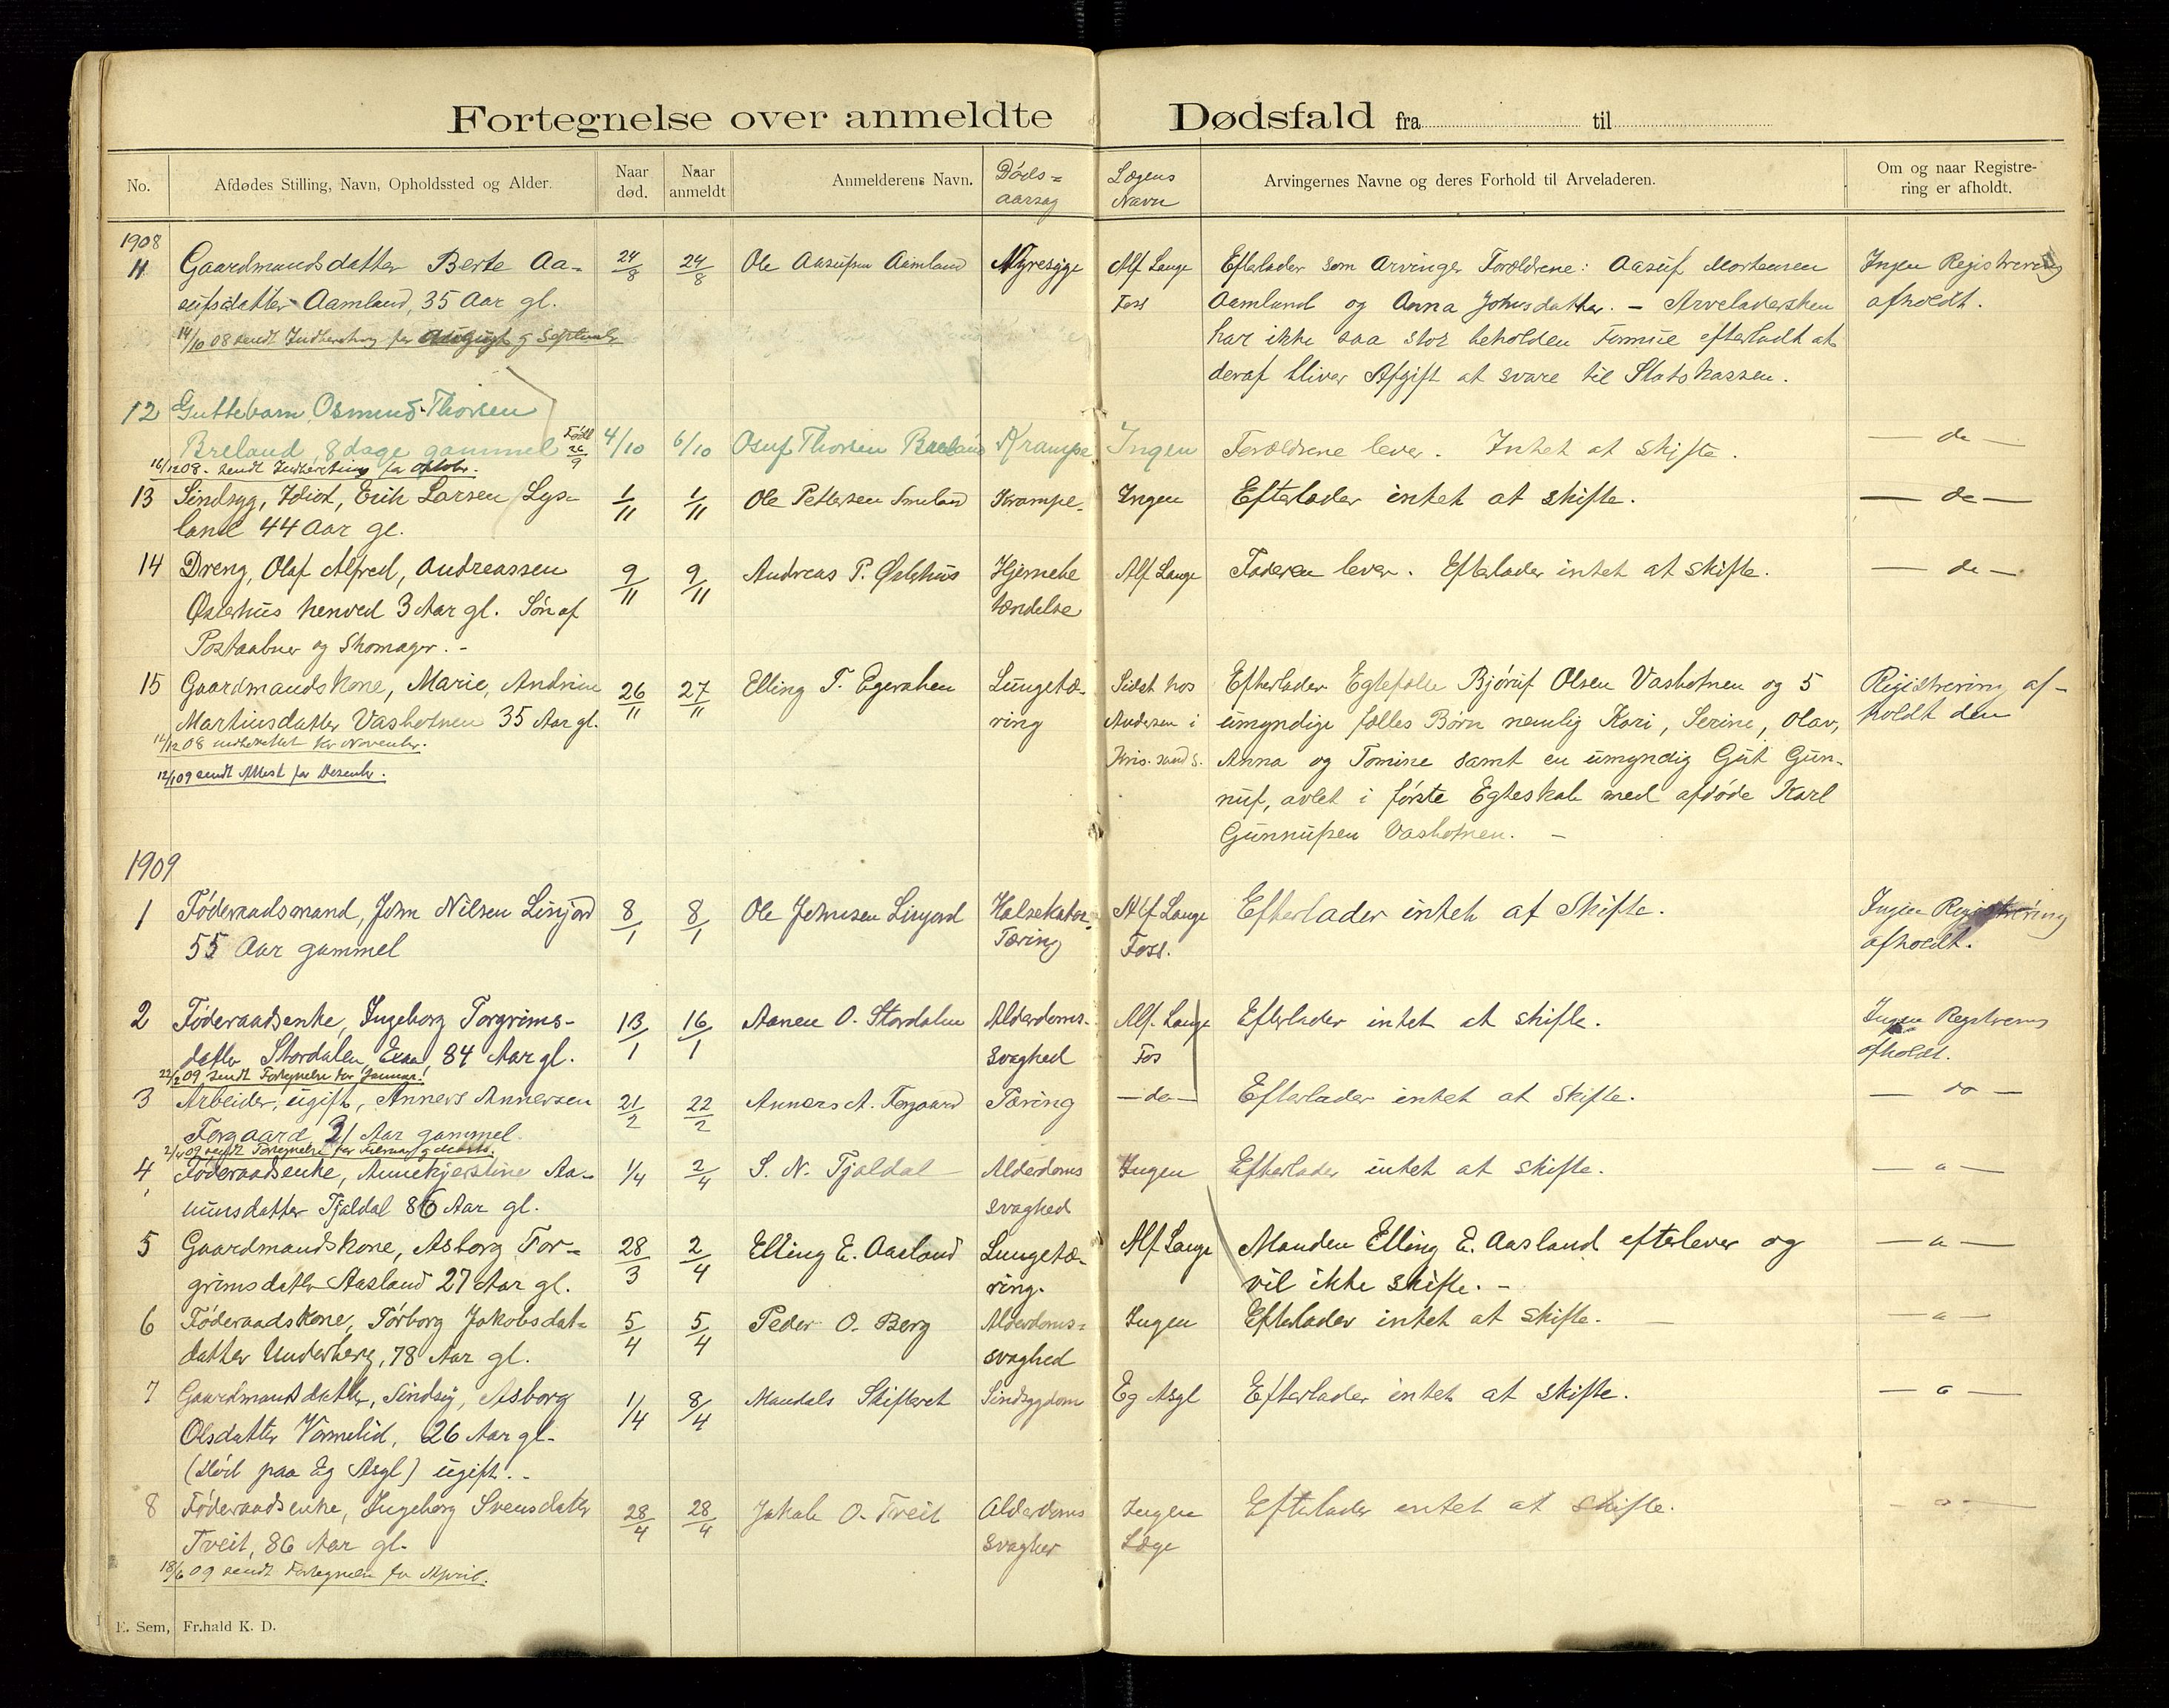 Fortegnelse over anmeldte Dødsfald fra til
No.
Afdødes Stilling, Navn, Opholdssted og Alder.
Naar død.
Naar anmeldt
Anmelderens Navn.
Døds= aarsag
Lægens Navn
Arvingernes Navne og deres Forhold til Arveladeren.
Om og naar Registre-
ring er afholdt.
1908
11 Gaardmandsdatter Berte Aa- 24/8 24/8 Ole Aasufsen Aamland Nyresyge Alf Lange Efterlader som Arvinger Forældrene: Aasuf Mortensen Ingen Registrering
sufsdatter Aamland, 35 Aar gl. Foss Aamland og Anna Johnsdatter. – Arveladersken afholdt.
14/10 08 sendt Indberetning for August og September har ikke saa stor beholden Formue efterladt at
deraf bliver Afgift at svare til Statskassen.
12 Guttebarn Osmund Thorsen
Breland, 8 dage gammel Født 26/9 4/10 6/10 Osuf Thorsen Breland Krampe Ingen Forældrene lever. Intet at skifte. — do —
16/12 08. sendt Indberetning for Oktober.
13 Sindsyg, Idiot, Erik Larsen Lys- 1/11 1/11 Ole Pettersen Smeland Krampe. Ingen Efterlader intet at skifte. — do —
land 44 Aar gl.
14 Dreng, Olaf Alfred, Andreassen 9/11 9/11 Andreas P. Øslehus Hjernebe Alf Lange Faderen lever. Efterlader intet at skifte. — do —
Øslehus henved 3 Aar gl. Søn af tændelse
Postaabner og Skomager. -
15 Gaardmandskone, Marie, Andrine 26/11 27/11 Elling T. Egeraken Lungetæ- Sidst hos Efterlader Egtefælle Bjøruf Olsen Vasbotnen og 5 Registrering af-
Martinsdatter Vasbotnen 35 Aar gl. ring Andersen i umyndige fælles Børn nemlig Kari, Serine, Olav, holdt den
12/12 08 indberettet for November. Kris.sand S. Anna og Tomine samt en umyndig Gut Gun-
12/1 09 sendt Attest for Desembr. nuf, avlet i første Egteskab med afdøde Karl
Gunnufsen Vasbotnen. –
1909
1 Føderaadsmand, John Nilsen Linjord 8/1 8/1 Ole Johnsen Linjord Halsekatar, Alf Lange Efterlader intet at skifte. Ingen Registrering
55 Aar gammel Tæring Foss. afholdt.
2 Føderaadsenke, Ingeborg Torgrims- 13/1 16/1 Aanen O. Stordalen Alderdoms- Alf. Lange Efterlader intet at skifte. Ingen Registrering
datter Stordalen, 84 Aar gl. svaghed Fos afholdt.
22/2 09, sendt Fortegnelse for Januar!
3 Arbeider, ugift, Anners Annersen 21/2 22/2 Anners A. Forgaard Tæring — do — Efterlader intet at skifte. — do —
Forgaard, 21 Aar gammel.
2/4 09 sendt Fortegnelse for Februar og Marts.
4 Føderaadsenke, Annekjerstine Aa- 1/4 2/4 S. N. Tjaldal Alderdoms Ingen Efterlader intet at skifte. — " —
nunsdatter Tjaldal 86 Aar gl. svaghed
5 Gaardmandskone, Asborg Tor- 28/3 2/4 Elling E. Aasland Lungetæ- Alf Lange Manden Elling E. Aasland efterlever og — " —
grimsdatter Aasland 27 Aar gl. ring. vil ikke skifte. –
6 Føderaadskone, Torborg Jakobsdat- 5/4 5/4 Peder O. Berg Alderdoms- Ingen Efterlader intet at skifte. — " —
datter Underberg, 78 Aar gl. svaghed
7 Gaardmandsdatter, Sindsyg, Asborg 1/4 8/4 Mandals Skifteret Sindsygdom Eg Asyl Efterlader intet at skifte. — " —
Olsdatter Vormelid, 26 Aar gl.
(død paa Eg Asyl) ugift. -
8 Føderaadsenke, Ingeborg Svensdatter 28/4 28/4 Jakob O. Tveit Alderdoms Ingen Efterlader intet at skifte. — " —
Tveit, 86 Aar gl. svaghed Læge
18/6 09 sendt Fortegnelse for April.
E. Sem, Fr.hald K. D.